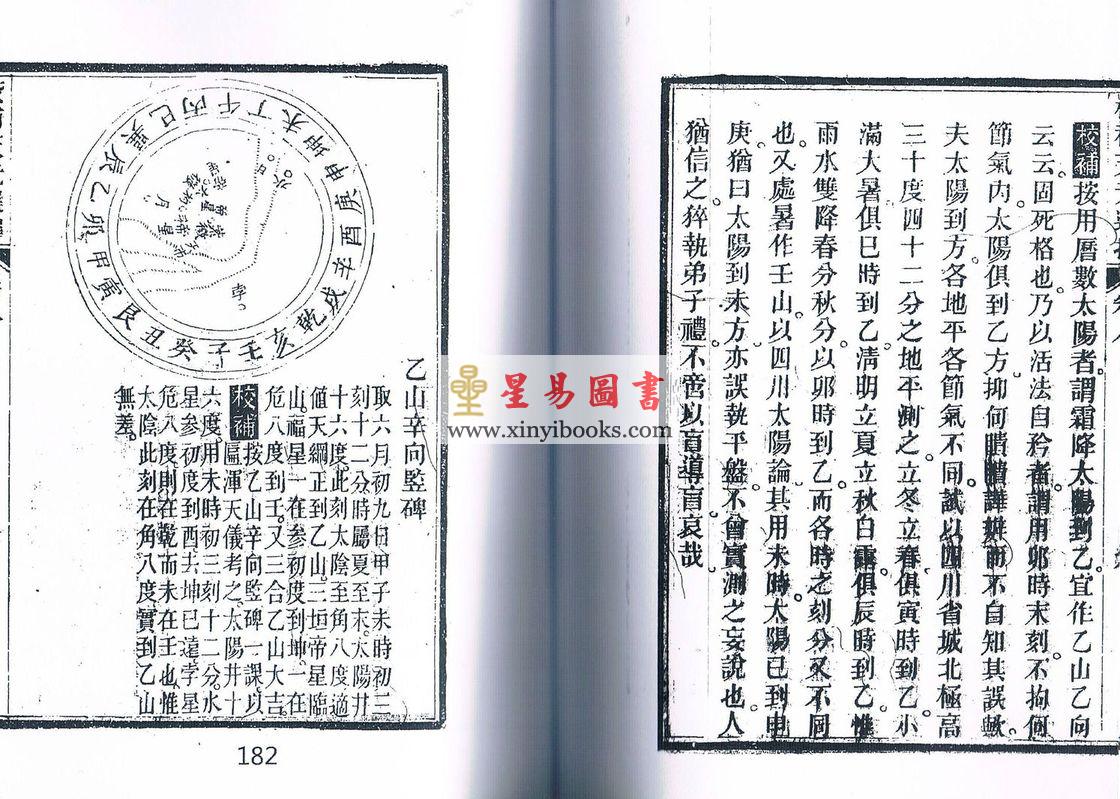 校補按用曆數太陽者謂霜降太陽到乙宜作乙山乙向
云云固死格也乃以活法自矜者謂用卯時末刻不拘何
節氣內太陽俱到乙方抑何聵聵譁辨而不自知其誤歟
夫太陽到方各地平各節氣不同試以四川省城北極高
三十度四十二分之地平測之立冬立春俱寅時到乙小
滿大暑俱巳時到乙清明立夏立秋白露俱辰時到乙惟
雨水雙降春分秋分以卯時到乙而各時之刻分又不同
也又處暑作壬山以四川太陽論其用未時太陽已到申
庚猶曰太陽到未方亦誤執平盤不曾實測之妄說也人
猶信之猝執弟子禮不啻以盲導盲哀哉
乙山辛向監碑
取六月初九日甲子未時初三
刻十二分時屬夏至末太陽井
十六度此刻太陰至角八度適
值天綱正到乙山三垣帝星臨
山福星一在参初度到坤一在
危八度到壬又三合乙山大吉
校補按乙山辛向監碑一課以
匾渾天儀考之太陽井十
六度用未時初三刻十二分水
星参初度到酉去坤已遠孛星
危八度則在乾而未在壬也惟
太陰此刻在角八度實到乙山
無差
子癸丑艮寅甲卯乙辰巽巳丙午丁未坤申庚酉辛戌乾亥壬
月
孛
水
星易圖書
www.xinyibooks.com
182